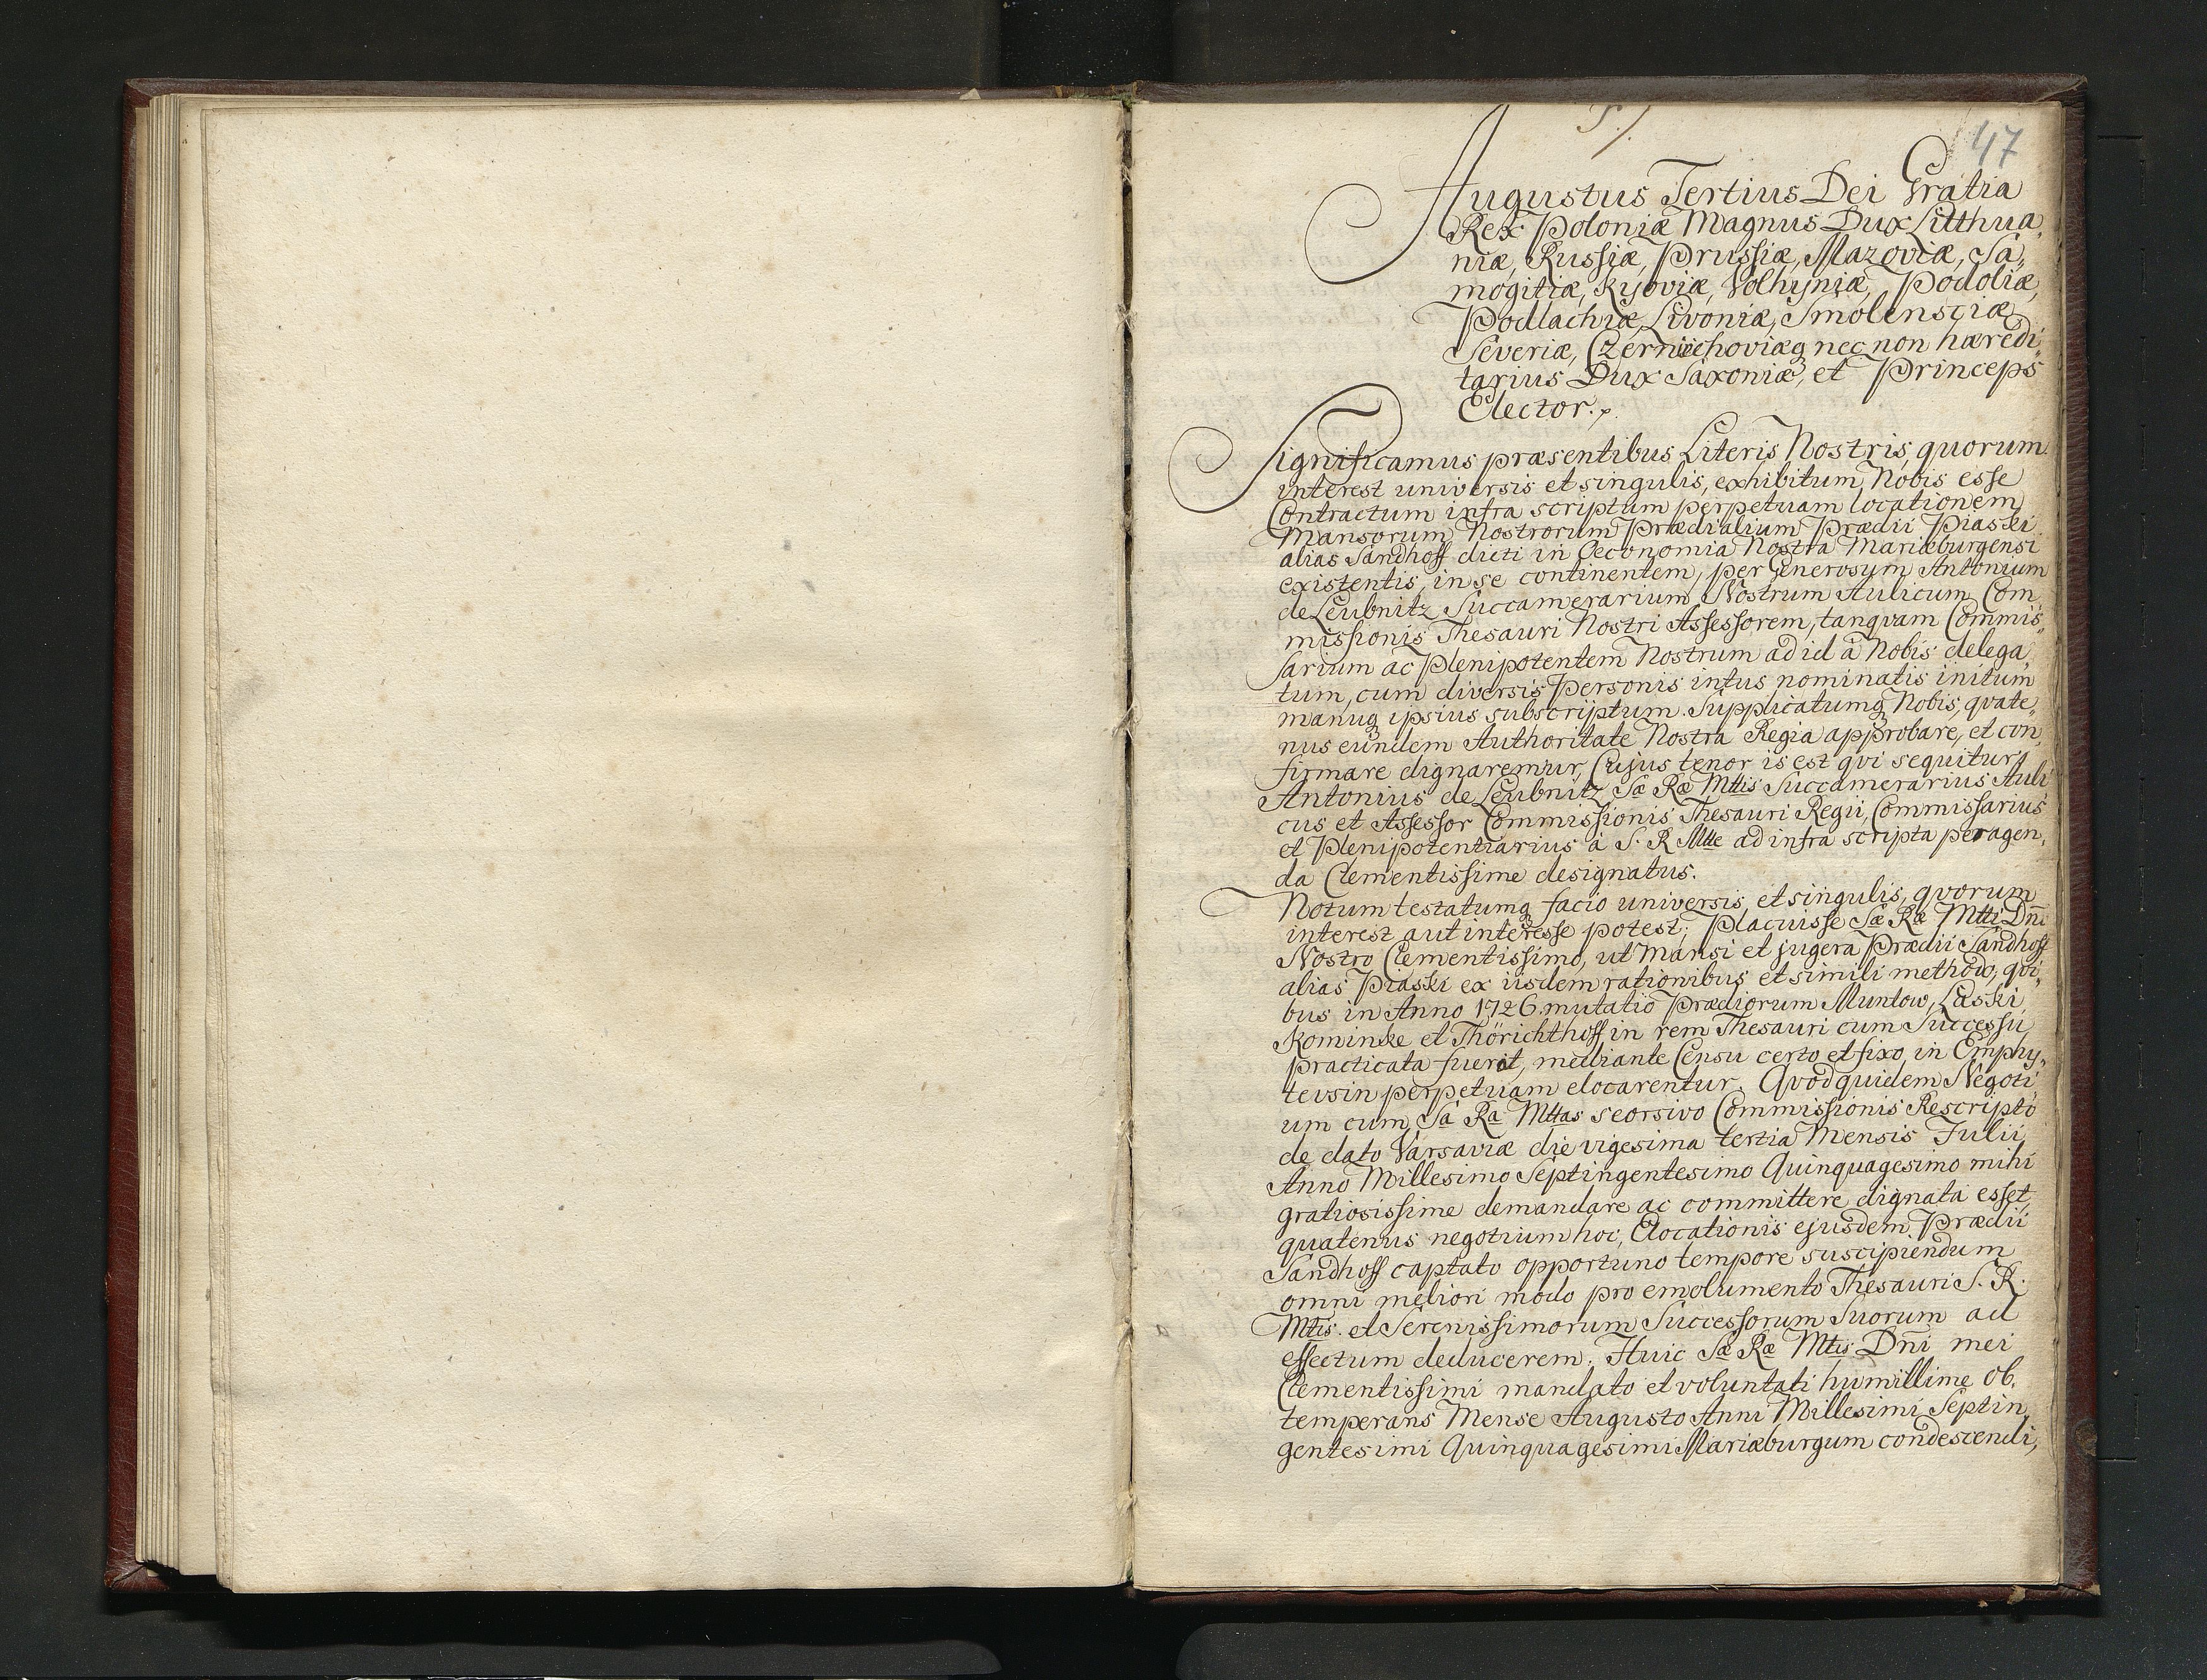 47
Augustus Tertius Dei Gratia
Rex Poloniæ Magnus Dux Litthua„
niæ, Russiæ, Prussiæ, Mazoviæ, Sa„
mogitiæ, Kyoviæ, Volhyniæ, Podoliæ,
Podlachiæ, Livoniæ, Smolensciæ
Severiæ, Czerniechoviæq nec non hæredi„
tarius Dux Saxoniæ, et Princeps
Elector.
Significamus præsentibus Literis Nostris, quorum
interest universis et singulis, exhibitum Nobis esse
Contractum infra scriptum perpetuam locationem
Mansorum Nostrorum Prædialium Prædii Piaski
alias Sandhoff dicti in Oeconomia Nostra Mariæburgensi
existentis, in se continentem, per Generosum Antonium
de Leubnitz Succamerarium Nostrum Aulicum Com„
missionis Thesauri Nostri Assessorem, tanqvam Commis„
sarium ac Plenipotentem Nostrum ad id à Nobis delega„
tum, cum diversis Personis intus nominatis initum
manuq ipsius subscriptum. Supplicatumq Nobis, qvate„
nus eundem Authoritate Nostra Regia approbare, et con„
firmare dignaremur, Cujus tenor is est qvi sequitur.
Antonius de Leubnitz Sæ Ræ Mttis Succamerarius Auli„
cus et Assessor Commissionis Thesauri Regii, Commissarius
et Plenipotentiarius à S. R Mtte ad infra scripta peragen„
da Clementissime designatus.
Notum testatumq facio universis et singulis, qvorum
interest aut interesse potest; Placuisse Sæ Ræ Mtti Dni
Nostro Clementissimo, ut Mansi et jugera Prædii Sandhoff
alias Piaski ex iisdem rationibus et simili methodo, qvi„
bus in Anno 1726 mutatio Prædiorum Muntow, Laski,
Kominke et Thörichthoff, in rem Thesauri cum Successu
practicata fuerat, mediante Censu certo et fixo, in Emphy„
teusin perpetuam elocarentur. Qvod quidem Negoti„
um cum Sa Ra Mttas seorsivo Commissionis Rescripto
de dato Varsaviæ die vigesima tertia Mensis Julii
Anno Millesimo Septingentesimo Quinquagesimo mihi
gratiosissime demandare ac committere dignata esset,
quatenus negotium hoc, Elocationis ejusdem Prædii
Sandhoff captato opportuno tempore suscipiendum
omni meliori modo pro emolumento Thesauri S. R.
Mttis. et Serenissimorum Successorum Suorum ad
effectum deducerem. Huic Sæ Ræ Mttis Dni mei
Clementissimi mandato et voluntati humillime ob„
temperans Mense Augusto Anni Millesimi Septin„
gentesimi Quinquagesimi Mariæburgum condescendi,